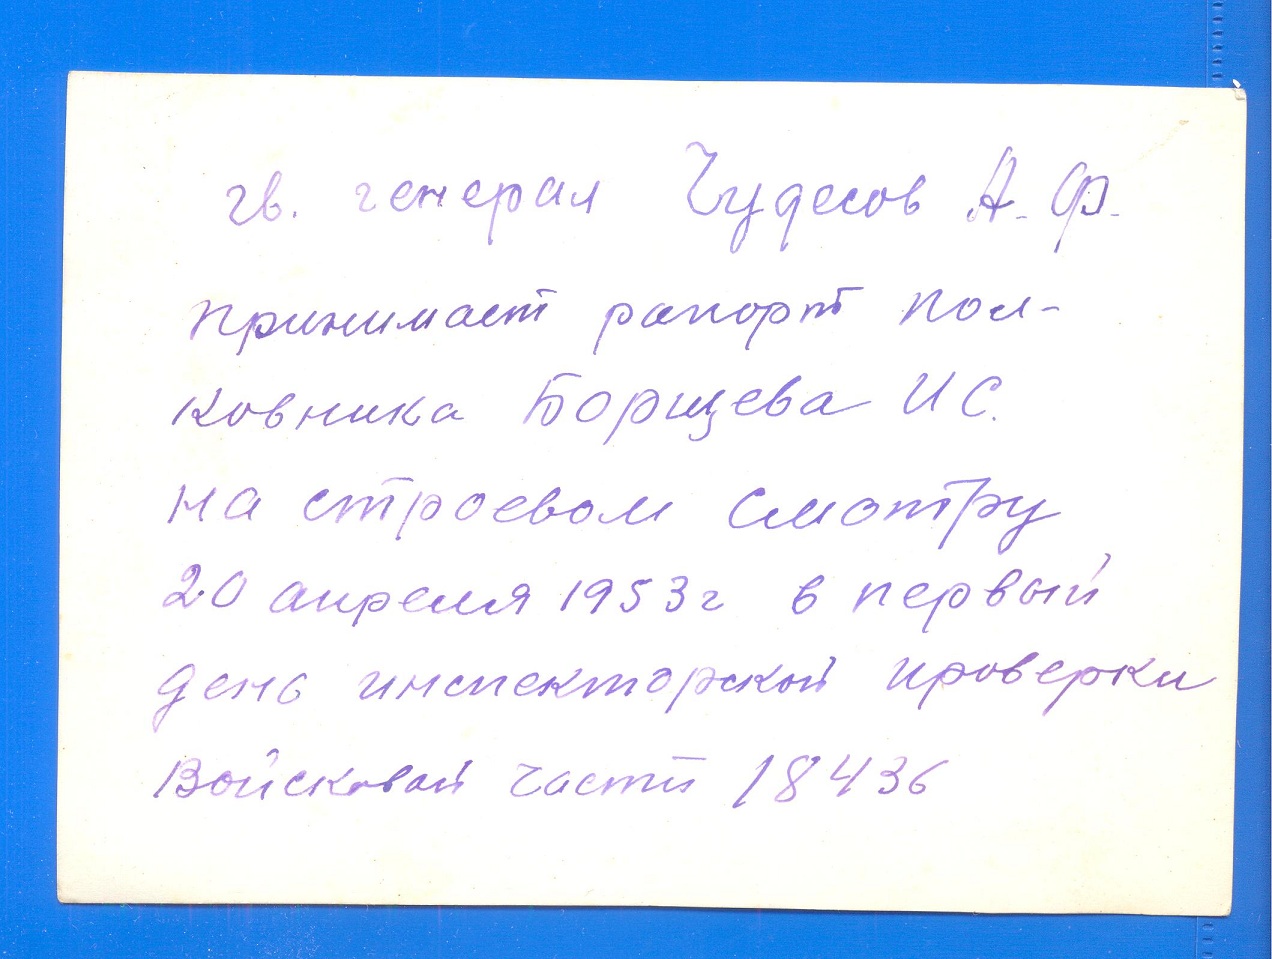 гв. генерал Чудесов А. Ф.
принимает рапорт пол-
ковника Борщева И С.
на строевом смотру
20 апреля 1953 г в первый
день инспекторской проверки
Войсковой части 18436